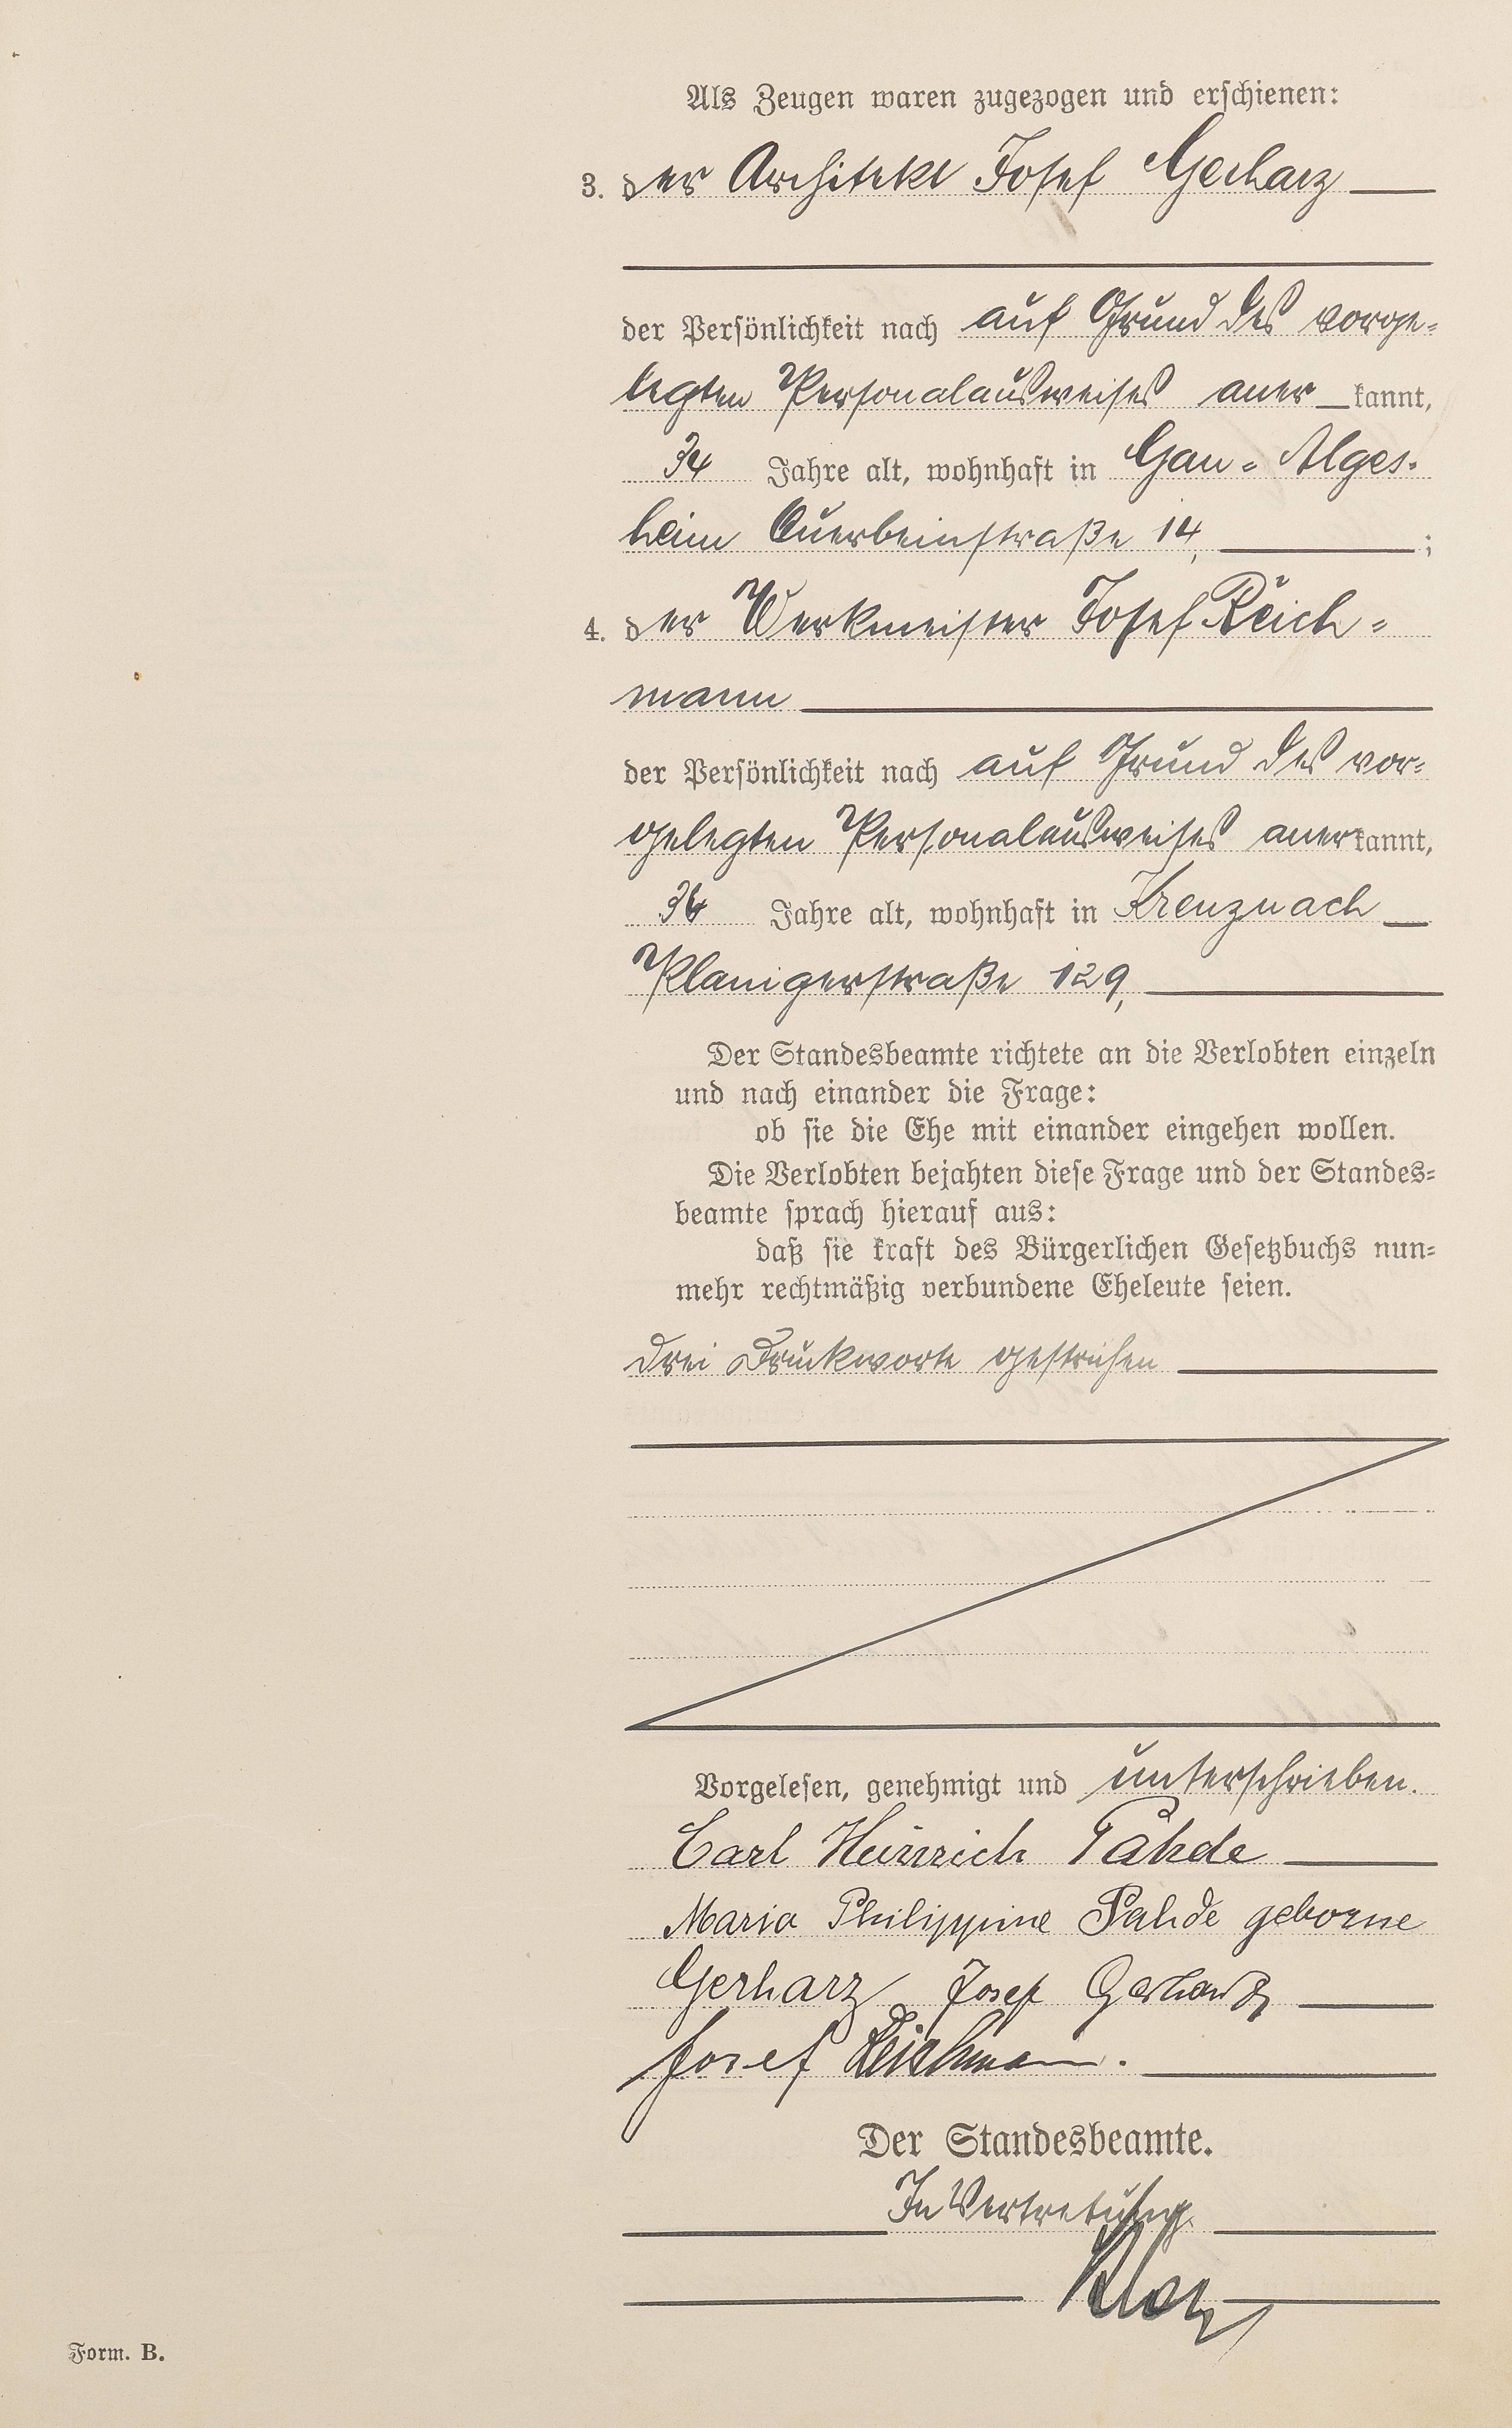 Als Zeugen waren zugezogen und erschienen:
3. der Architekt Josef Gerharz
der Persönlichkeit nach auf Grund des vorge-
legten Personalausweises aner kannt,
34 Jahre alt, wohnhaft in Gau-Alges-
heim Querbeinstraße 14,;
4. der Werkmeister Josef Reich-
mann
der Persönlichkeit nach auf Grund des vor-
gelegten Personalausweises anerkannt,
Jahre alt, wohnhaft in Kreuznach
Planigerstraße 129,
Der Standesbeamte richtete an die Verlobten einzeln
und nach einander die Frage:
ob sie die Ehe mit einander eingehen wollen.
Die Verlobten bejahten diese Frage und der Standes-
beamte sprach hierauf aus:
daß sie kraft des Bürgerlichen Gesetzbuchs nun-
mehr rechtmäßig verbundene Eheleute seien.
Drei Druckworte gestrichen
Vorgelesen, genehmigt und unterschrieben.
Carl Heinrich Pahde
Maria Philippine Pahde geborne
Gerharz Josef Gerharz
Josef Reichmann.
Der Standesbeamte.
In Vertretung
Form. B.